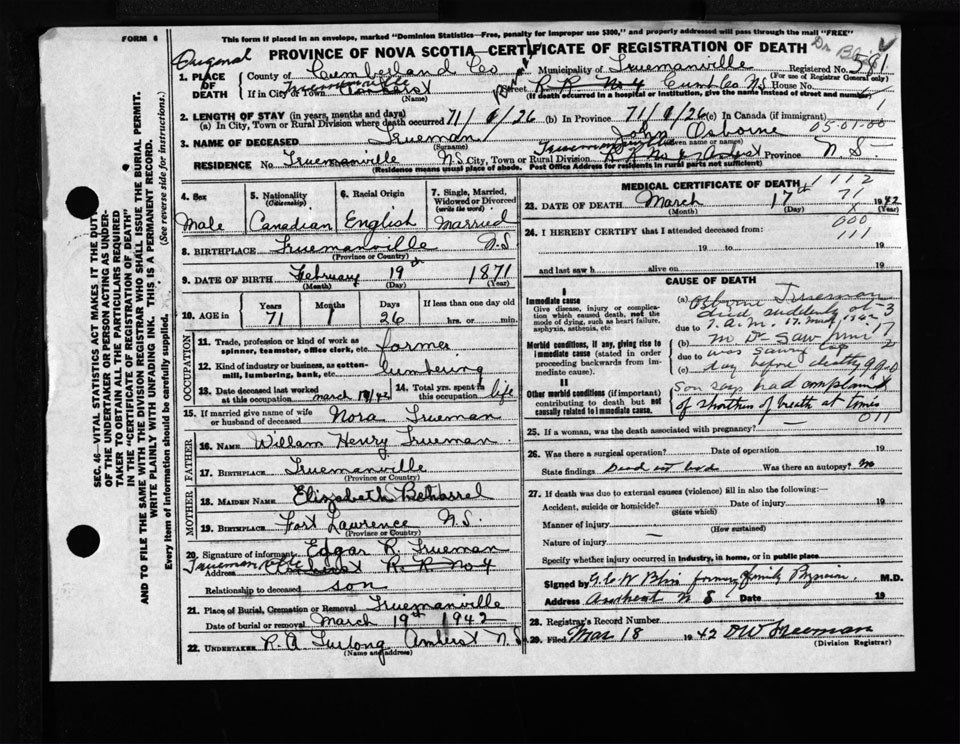 FORM 6
This form if placed in an envelope, marked "Dominion Statistics—Free, penalty for improper use $300," and properly addressed will pass through the mail "FREE"
Original
PROVINCE OF NOVA SCOTIA—CERTIFICATE OF REGISTRATION OF DEATH
1. PLACE OF DEATH County of Cumberland Co Municipality of Truemanville Registered No. 581
(For use of Registrar General only)
If in City or Town Amherst Street R R No 4 Cumb Co NS House No.
(Name) (If death occurred in a hospital or institution, give the name instead of street and number)
2. LENGTH OF STAY (in years, months and days)
(a) In City, Town or Rural Division where death occurred 71/1/26 (b) In Province 71/1/26 (c) In Canada (if immigrant)
05-01-00
3. NAME OF DECEASED Trueman John Osborne
(Surname) (Given name or names)
RESIDENCE No. Truemanville N.S. City, Town or Rural Division Province N.S.
(Residence means usual place of abode. Post Office Address for residents in rural parts not sufficient)
4. Sex Male
5. Nationality (Citizenship) Canadian
6. Racial Origin English
7. Single, Married, Widowed or Divorced (write the word) Married
8. BIRTHPLACE Truemanville N.S
(Province or Country)
9. DATE OF BIRTH February 19th 1871
(Month) (Day) (Year)
10. AGE in Years 71 Months 1 Days 26 If less than one day old hrs. or min.
OCCUPATION
11. Trade, profession or kind of work as spinner, teamster, office clerk, etc. farmer
12. Kind of industry or business, as cotton-mill, lumbering, bank, etc. lumbering
13. Date deceased last worked at this occupation march 14. Total yrs. spent in this occupation life
15. If married give name of wife or husband of deceased Nora Trueman
FATHER
16. NAME William Henry Trueman
17. BIRTHPLACE Truemanville
(Province or Country)
MOTHER
18. MAIDEN NAME Elizabeth
19. BIRTHPLACE Fort Lawrence N.S.
(Province or Country)
20. Signature of informant Edgar R. Trueman
Truemanville
Address Amherst R R No 4
Relationship to deceased son
21. Place of Burial, Cremation or Removal Truemanville
Date of burial or removal March 19th 1942
22. UNDERTAKER R. A Furlong Amherst N.S
(Name and address)
MEDICAL CERTIFICATE OF DEATH
1112
23. DATE OF DEATH March 17th 1942
71
(Month) (Day)
000
24. I HEREBY CERTIFY that I attended deceased from:
111
19 to 19
and last saw h alive on 19
CAUSE OF DEATH
I
Immediate cause
Give disease, injury or complication which caused death, not the mode of dying, such as heart failure, asphyxia, asthenia, etc.
Morbid conditions, if any, giving rise to immediate cause (stated in order proceeding backwards from immediate cause).
II
Other morbid conditions (if important) contributing to death but not causally related to immediate cause.
(a) Osborne Trueman
died suddenly at 3
due to 7. a.m. 17. March 1942
(b) no Dr saw him
due to was sawing
(c) day before death
Son says had complained
of shortness of breath at times
011
25. If a woman, was the death associated with pregnancy?
26. Was there a surgical operation? Date of operation 19
State findings Was there an autopsy? no
27. If death was due to external causes (violence) fill in also the following:—
Accident, suicide or homicide? Date of injury 19
(State which)
Manner of injury
(How sustained)
Nature of injury
Specify whether injury occurred in industry, in home, or in public place
Signed by former family Physician M.D.
Address Amherst N S Date 19
28. Registrar's Record Number
29. Filed Mar 18 1942
(Division Registrar)
SEC. 46—VITAL STATISTICS ACT MAKES IT THE DUTY OF THE UNDERTAKER OR PERSON ACTING AS UNDERTAKER TO OBTAIN ALL THE PARTICULARS REQUIRED IN THE "CERTIFICATE OF REGISTRATION OF DEATH" AND TO FILE THE SAME WITH THE DIVISION REGISTRAR WHO SHALL ISSUE THE BURIAL PERMIT.
WRITE PLAINLY WITH UNFADING INK. THIS IS A PERMANENT RECORD.
Every item of information should be carefully supplied. (See reverse side for instructions.)